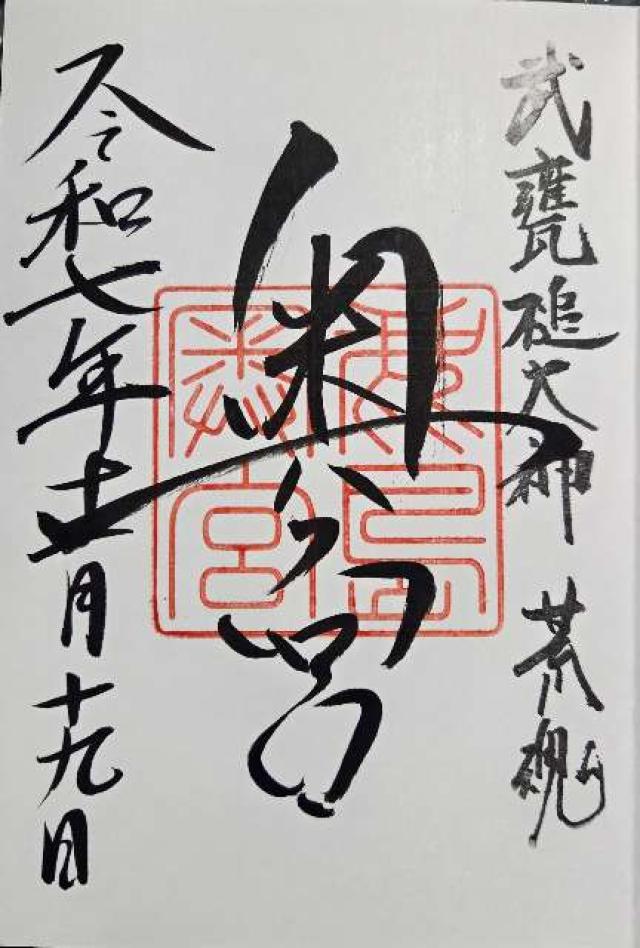 武甕槌大神 荒魂
奥宮
令和七年十一月十九日
鹿島
奥宮